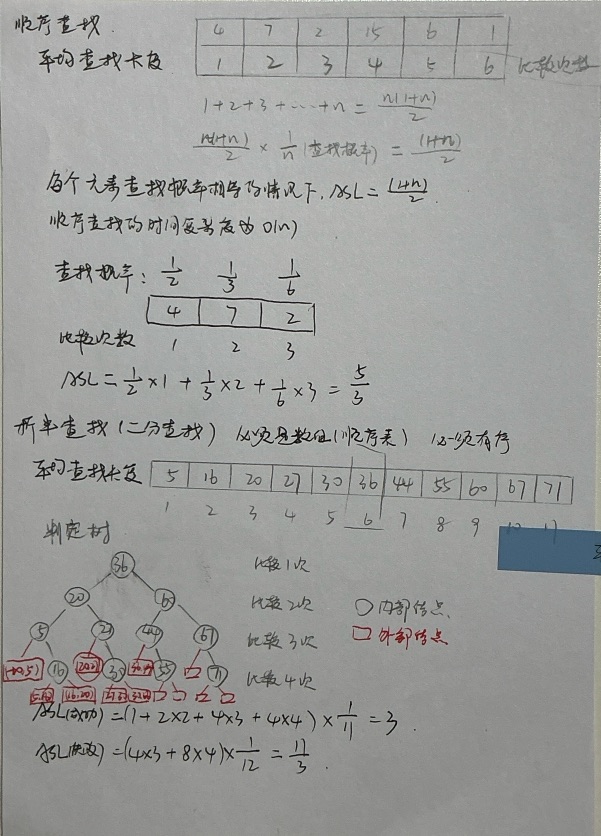 顺序查找.
4 7 2 15 6 1
平均查找长度 1 2 3 4 5 6 比较次数
1+2+3+…+n = n(1+n)/2
n(1+n)/2 × 1/n (查找概率) = (1+n)/2
每个元素查找概率相等的情况下, ASL = (1+n)/2.
顺序查找的时间复杂度为 O(n)
查找概率: 1/2 1/3 1/6
4 7 2
比较次数 1 2 3
ASL = 1/2×1 + 1/3×2 + 1/6×3 = 5/3
折半查找(二分查找) 必须是数组(顺序表) 必须有序
平均查找长度 5 16 20 27 30 36 44 55 60 67 71
1 2 3 4 5 6 7 8 9 10 11
判定树
36 比较1次
20 60 比较2次 ○内部结点
5 27 44 67 比较3次 □外部结点
16 30 55 71 比较4次
ASL(成功) = (1+2×2+4×3+4×4) × 1/11 = 3.
ASL(失败) = (4×3+8×4) × 1/12 = 11/3.